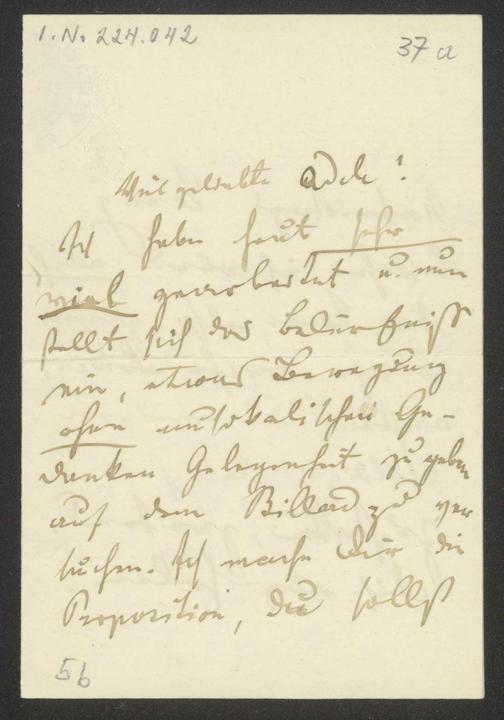 I. N. 224.042
37 a
Viel geliebte Adele!
Ich habe heut sehr
viel gearbeitet u. nun
stellt sich das Bedürfniss
ein, etwas Bewegung
ohne musikalischen Ge-
danken Gelegenheit zu geben
auf dem Billard zu ver
suchen. Ich mache Dir die
Proposition, du sollst
5b